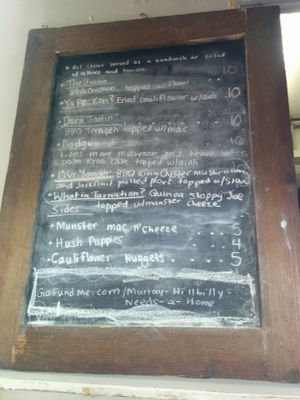 • All items served as a sandwich or salad
of lettuce and tomato
• The Bubba 10
BBQ Chicken topped w/slaw
• Ya Reckon? Fried cauliflower w/aioli 10
• Darn Tootin? 10
BBQ Tempeh topped w/mac
• Dadgummit 10
Lions mane mushroom and heart of
palm Krab cake topped w/aioli
• Ovr Yonder BBQ King Oyster mushroom
and jackfruit pulled pork topped w/slaw
• What in Tarnation? Quinoa sloppy Joe
Sides topped w/munster cheese
• Munster mac n' Cheese 5
• Hush Puppies 4
• Cauliflower Nuggets 5
GoFundMe.com/Murray-Hillbilly-
Needs-a-Home